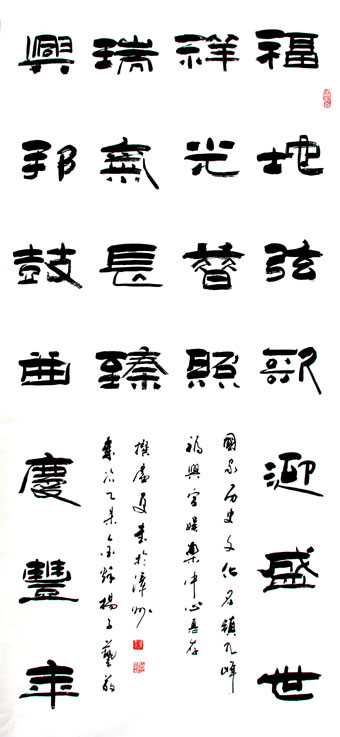 福地弦歌迎盛世
祥光普照
國家历史文化名鎮九峰
福興宮娱樂中心惠存
興邦鼓曲慶豐年
瑞炁長臻
歲次乙未金秋楊子藝敬
撰 書於漳州